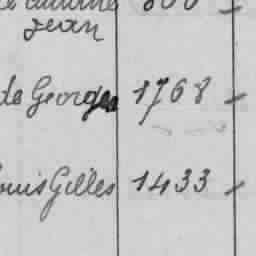 Jean
de Georges 1768 -
Louis Gilles 1433 -